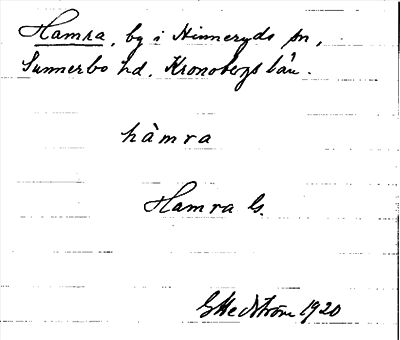 Hamra, by i Hinneryds sn,
Sunnerbo hd. Kronobergs län.
hàmra
Hamra G.
GHedström 1920